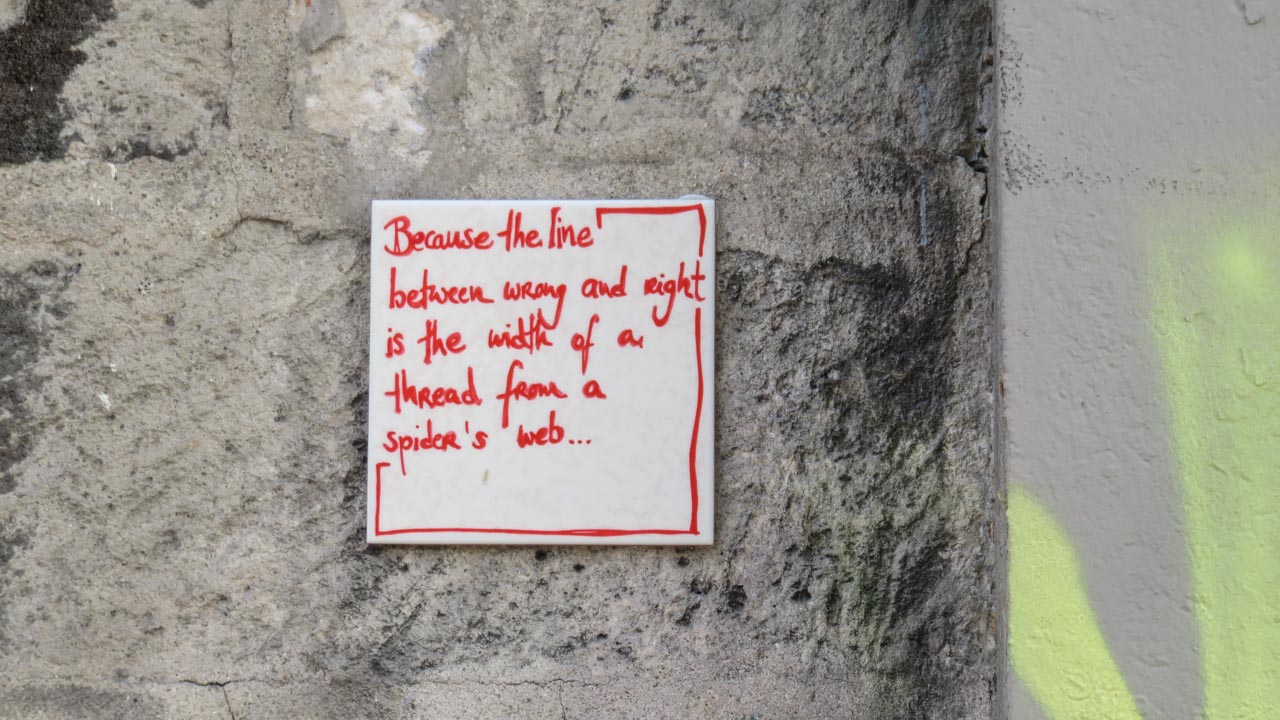 Because the line
between wrong and right
is the width of a
thread from a
spider's web...